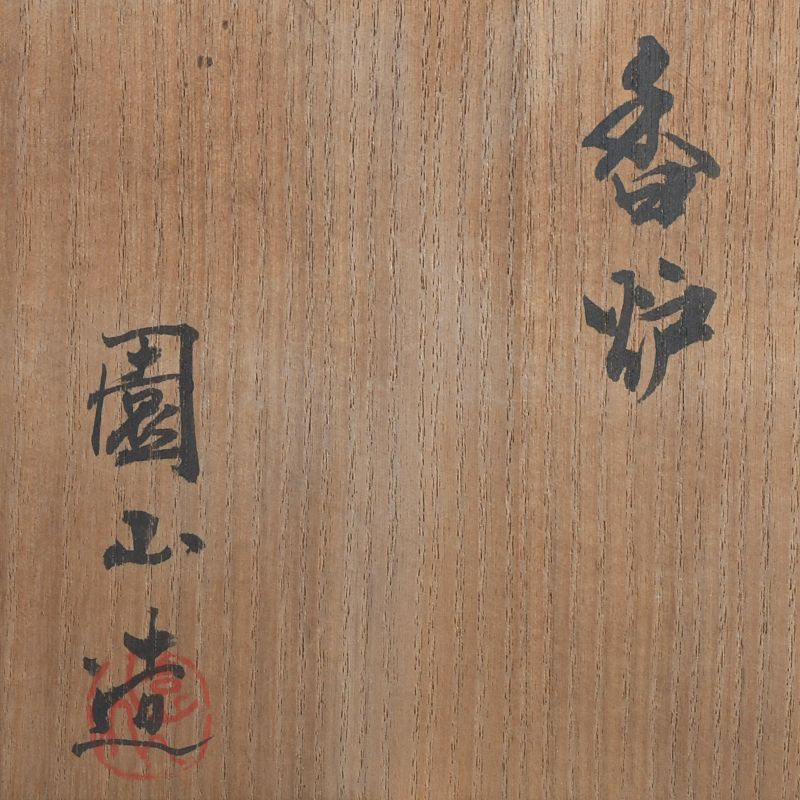 香炉
園山造